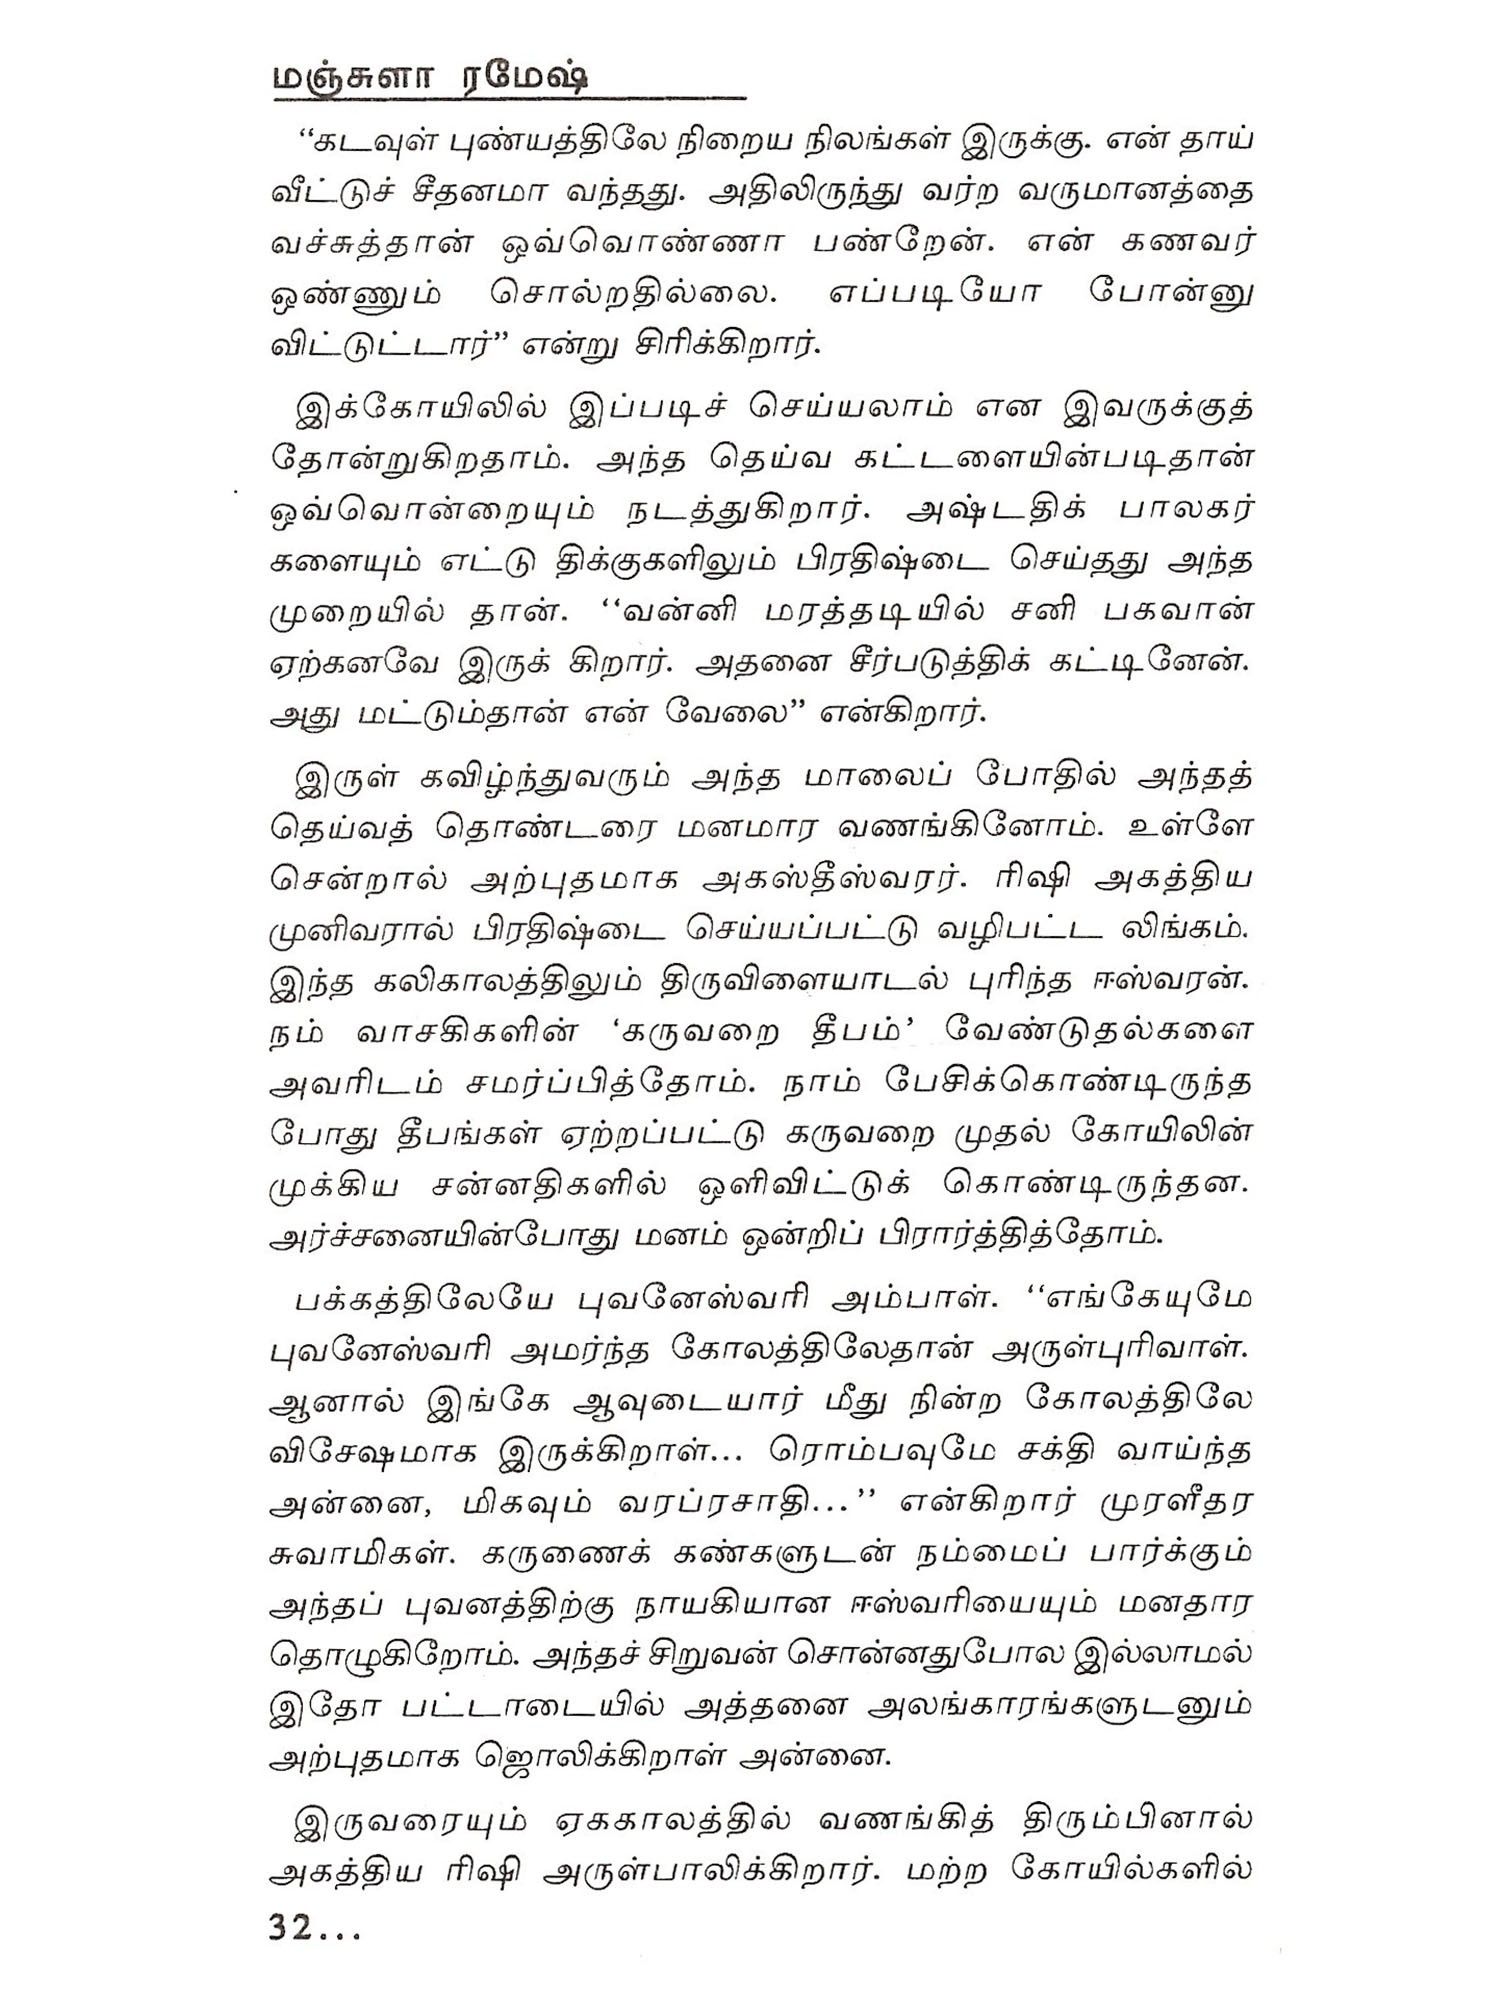 மஞ்சுளா ரமேஷ்
“கடவுள் புண்யத்திலே நிறைய நிலங்கள் இருக்கு. என் தாய்
வீட்டுச் சீதனமா வந்தது. அதிலிருந்து வர்ற வருமானத்தை
வச்சுத்தான் ஒவ்வொண்ணா பண்றேன். என் கணவர்
ஒண்ணும் சொல்றதில்லை. எப்படியோ போன்னு
விட்டுட்டார்” என்று சிரிக்கிறார்.
இக்கோயிலில் இப்படிச் செய்யலாம் என இவருக்குத்
தோன்றுகிறதாம். அந்த தெய்வ கட்டளையின்படிதான்
ஒவ்வொன்றையும் நடத்துகிறார். அஷ்டதிக் பாலகர்
களையும் எட்டு திக்குகளிலும் பிரதிஷ்டை செய்தது அந்த
முறையில் தான். ‘‘வன்னி மரத்தடியில் சனி பகவான்
ஏற்கனவே இருக் கிறார். அதனை சீர்படுத்திக் கட்டினேன்.
அது மட்டும்தான் என் வேலை” என்கிறார்.
இருள் கவிழ்ந்துவரும் அந்த மாலைப் போதில் அந்தத்
தெய்வத் தொண்டரை மனமார வணங்கினோம். உள்ளே
சென்றால் அற்புதமாக அகஸ்தீஸ்வரர். ரிஷி அகத்திய
முனிவரால் பிரதிஷ்டை செய்யப்பட்டு வழிபட்ட லிங்கம்.
இந்த கலிகாலத்திலும் திருவிளையாடல் புரிந்த ஈஸ்வரன்.
நம் வாசகிகளின் ‘கருவறை தீபம்’ வேண்டுதல்களை
அவரிடம் சமர்ப்பித்தோம். நாம் பேசிக்கொண்டிருந்த
போது தீபங்கள் ஏற்றப்பட்டு கருவறை முதல் கோயிலின்
முக்கிய சன்னதிகளில் ஒளிவிட்டுக் கொண்டிருந்தன.
அர்ச்சனையின்போது மனம் ஒன்றிப் பிரார்த்தித்தோம்.
பக்கத்திலேயே புவனேஸ்வரி அம்பாள். ‘‘எங்கேயுமே
புவனேஸ்வரி அமர்ந்த கோலத்திலேதான் அருள்புரிவாள்.
ஆனால் இங்கே ஆவுடையார் மீது நின்ற கோலத்திலே
விசேஷமாக இருக்கிறாள்... ரொம்பவுமே சக்தி வாய்ந்த
அன்னை, மிகவும் வரப்ரசாதி...’’ என்கிறார் முரளீதர
சுவாமிகள். கருணைக் கண்களுடன் நம்மைப் பார்க்கும்
அந்தப் புவனத்திற்கு நாயகியான ஈஸ்வரியையும் மனதார
தொழுகிறோம். அந்தச் சிறுவன் சொன்னதுபோல இல்லாமல்
இதோ பட்டாடையில் அத்தனை அலங்காரங்களுடனும்
அற்புதமாக ஜொலிக்கிறாள் அன்னை.
இருவரையும் ஏககாலத்தில் வணங்கித் திரும்பினால்
அகத்திய ரிஷி அருள்பாலிக்கிறார். மற்ற கோயில்களில்
32...